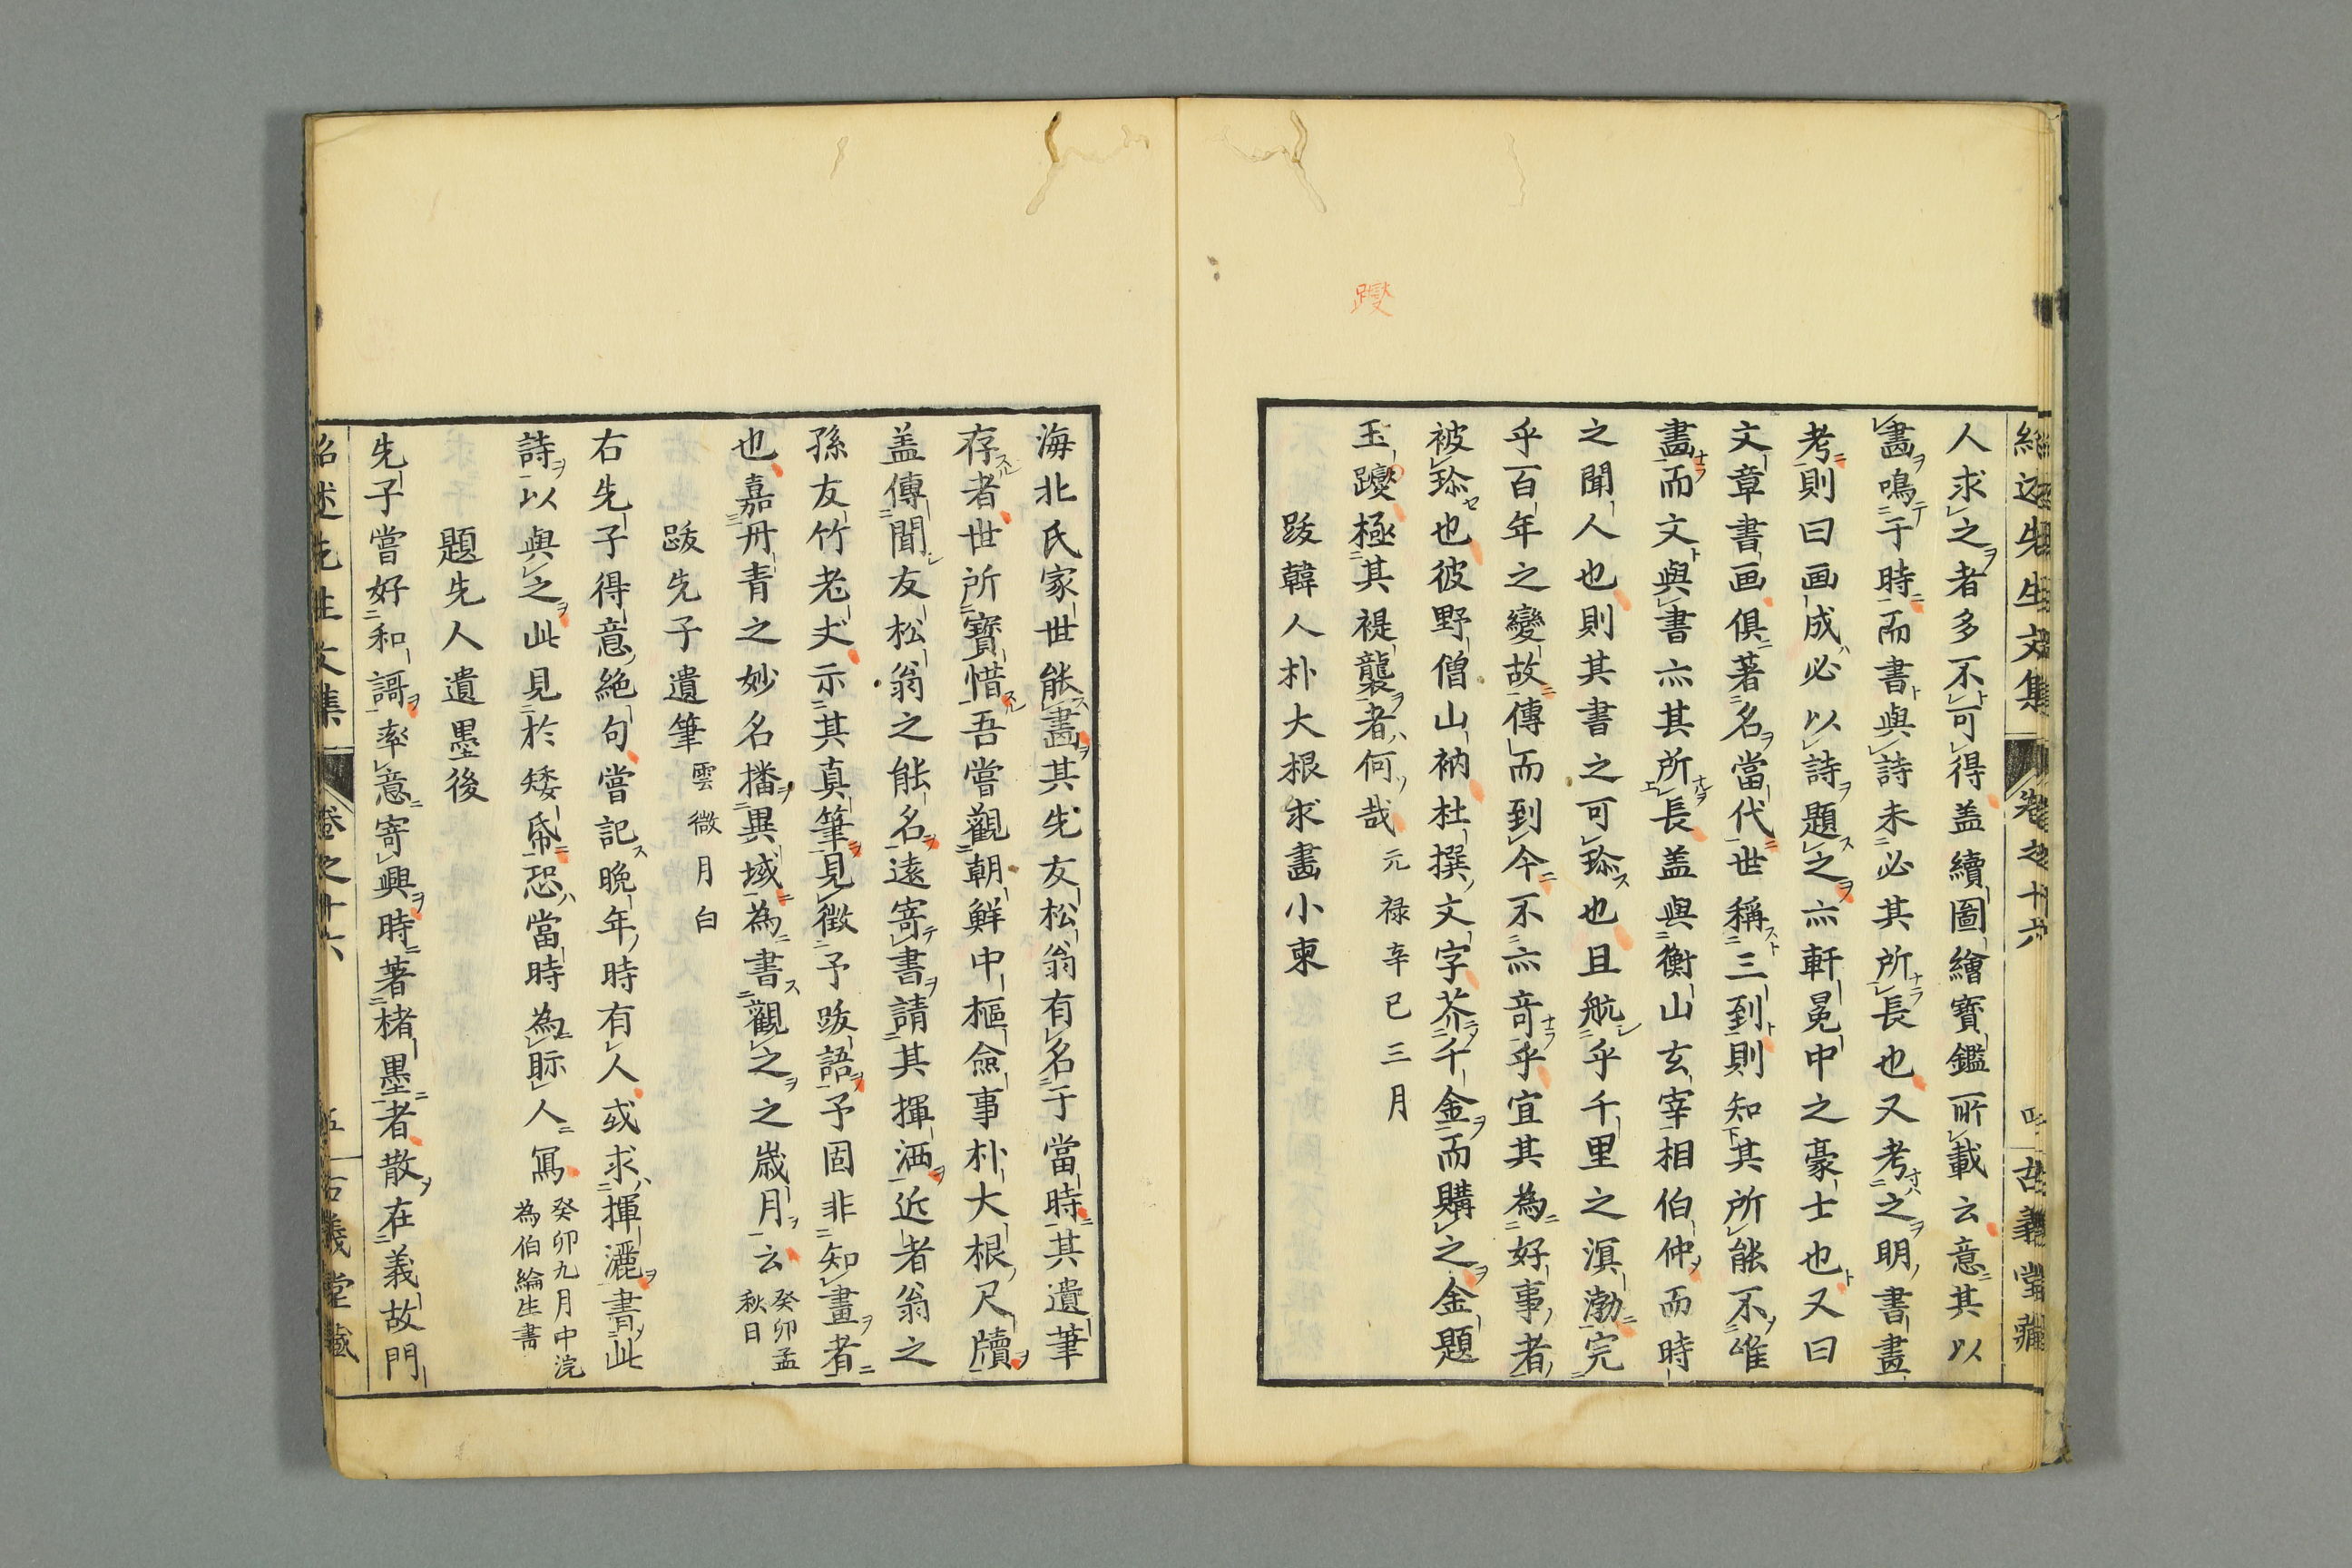 紹述先生文集 卷之十六 四 古義堂藏
人求之者多不可得盖續圖繪寶鑑所載云意其以
畵鳴于時而書與詩未必其所長也又考之明書畫
考則曰画成必以詩題之亦軒冕中之豪士也又曰
文章書画俱著名當代世稱三到則知其所能不唯
畵而文與書亦其所長盖與衡山玄宰相伯仲而時
之聞人也則其書之可珎也且航乎千里之溟渤完
乎百年之變故傳而到今不亦竒乎宜其為好事者
被珎也彼野僧山衲杜撰文字芥千金而購之金題
玉躞極其禔襲者何哉 元禄辛巳三月
躞
跋韓人朴大根求畵小柬
海北氏家世能畵其先友松翁有名于當時其遺筆
存者世所寶惜吾嘗觀朝鮮中樞僉事朴大根尺牘
盖傳聞友松翁之能名遠寄書請其揮洒近者翁之
孫友竹老丈示其真筆見徴予跋語予固非知畫者
也嘉丹青之妙名播異域為書觀之之歳月云 癸卯孟
秋日
跋先子遺筆 雲微月白
右先子得意絶句嘗記晩年時有人或求揮灑書此
詩以與之此見於矮帋恐當時為眎人寫 癸卯九月中浣
為伯綸生書
題先人遺墨後
先子嘗好和謌率意寄興時著楮墨者散在義故門
紹述先生文集 卷之十六 五 古義堂藏